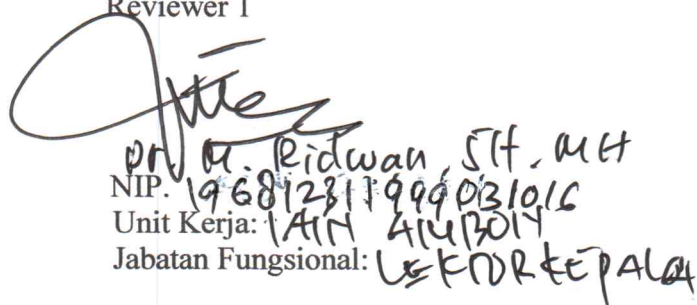 Reviewer 1
Dr. M. Ridwan, SH. MH
NIP. 196812311999031016
Unit Kerja: IAIN AMBON
Jabatan Fungsional: LEKTOR KEPALA